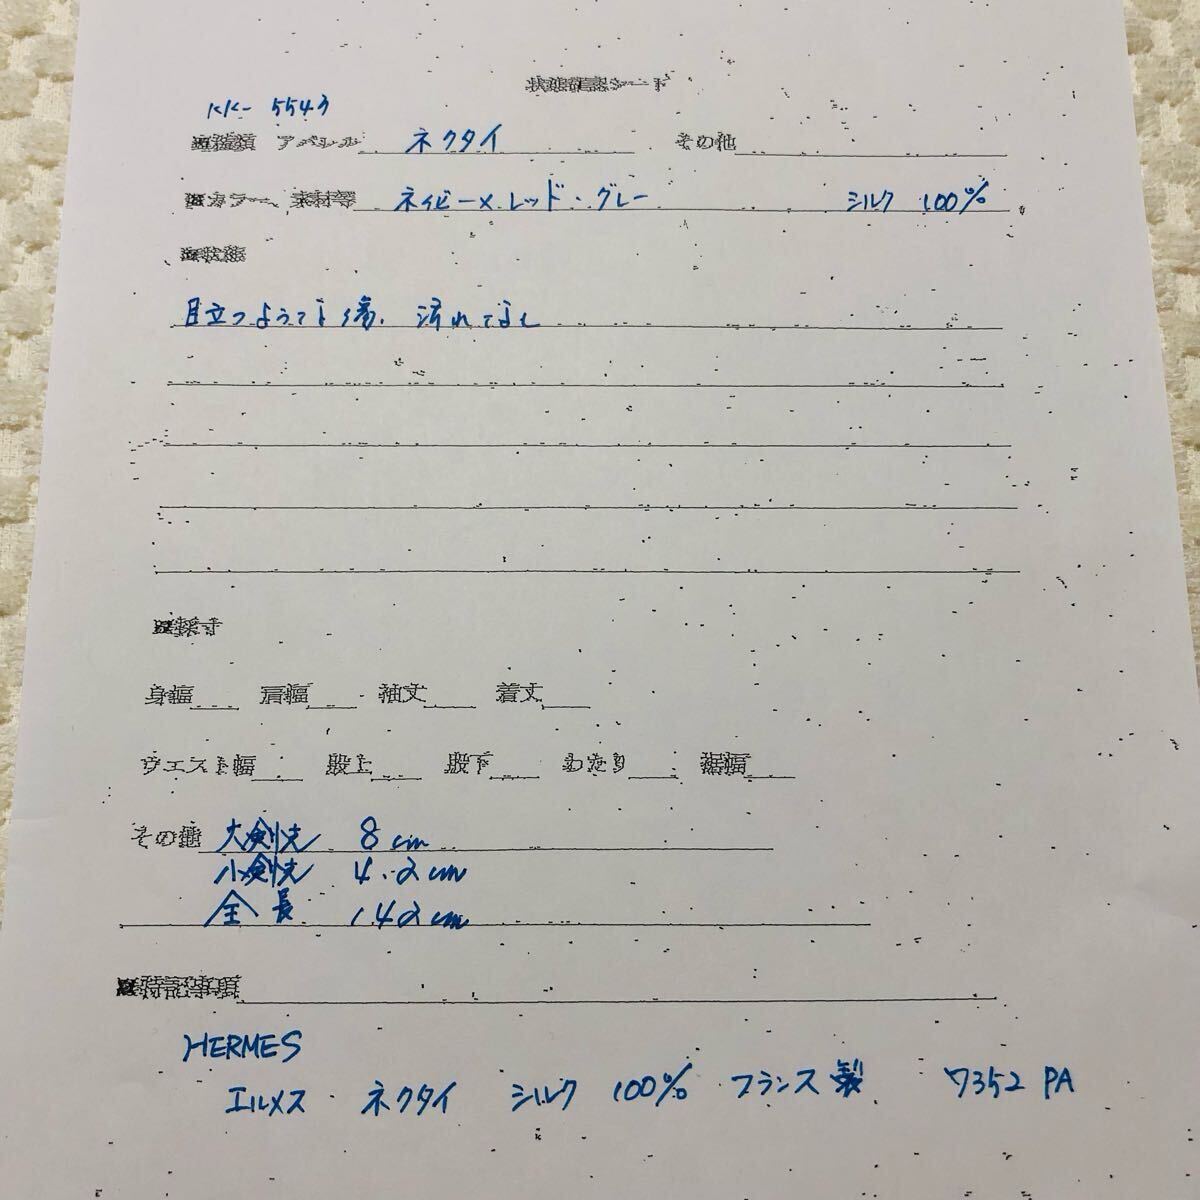 状態確認シート
KK- 5543
■種類 アパレル ネクタイ その他
■カラー、素材等 ネイビー×レッド・グレー シルク 100%
■状態
目立つような傷、汚れてなし
■採寸
身幅 肩幅 袖丈 着丈
ウエスト幅 股上 股下 わたり 裾幅
その他 大剣先 8cm
小剣先 4.2cm
全長 142cm
■特記事項
HERMES
エルメス ネクタイ シルク 100% フランス製 7352 PA